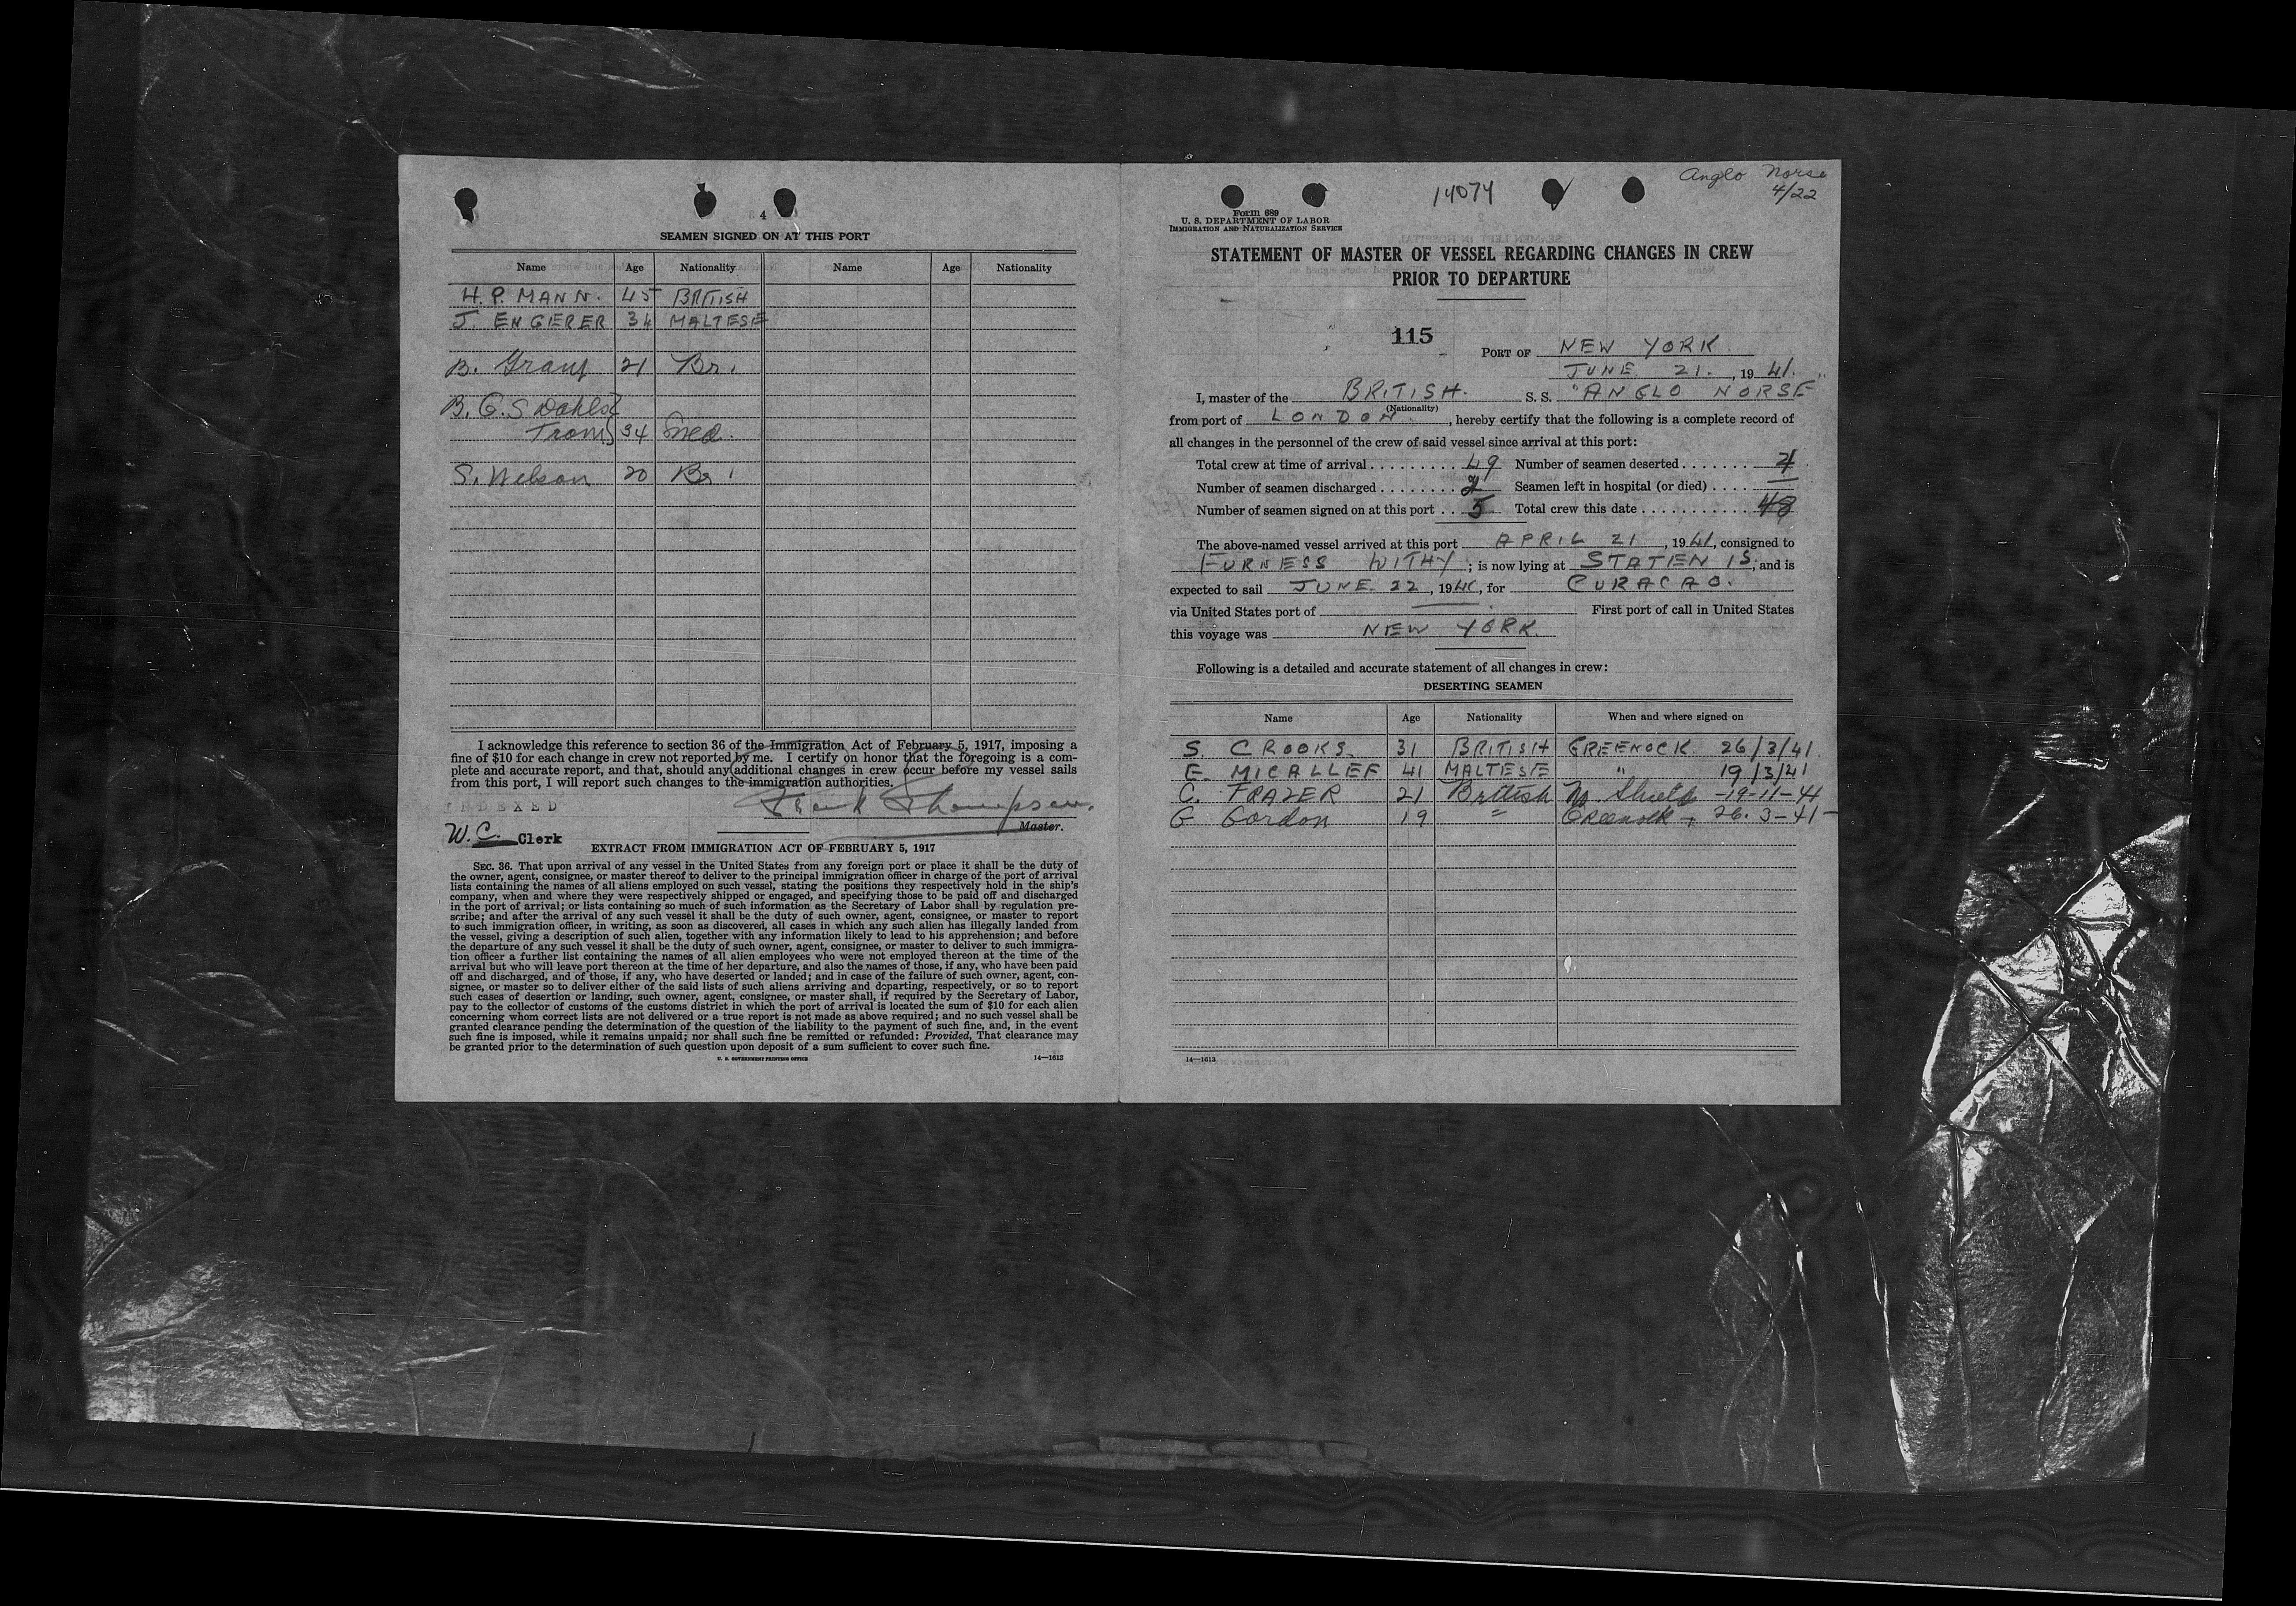 4
SEAMEN SIGNED ON AT THIS PORT
Name Age Nationality Name Age Nationality
H. P. MANN. 45 BRITISH
J. ENGERER 34 MALTESE
B. Grant 21 Br.
B. G. S. Dahls
Trom 34 Swed.
S. Nelson 20 Br.
I acknowledge this reference to section 36 of the Immigration Act of February 5, 1917, imposing a
fine of $10 for each change in crew not reported by me. I certify on honor that the foregoing is a com-
plete and accurate report, and that, should any additional changes in crew occur before my vessel sails
from this port, I will report such changes to the immigration authorities.
INDEXED
Frank Thompson.
W. C. Clerk
Master.
EXTRACT FROM IMMIGRATION ACT OF FEBRUARY 5, 1917
SEC. 36. That upon arrival of any vessel in the United States from any foreign port or place it shall be the duty of
the owner, agent, consignee, or master thereof to deliver to the principal immigration officer in charge of the port of arrival
lists containing the names of all aliens employed on such vessel, stating the positions they respectively hold in the ship's
company, when and where they were respectively shipped or engaged, and specifying those to be paid off and discharged
in the port of arrival; or lists containing so much of such information as the Secretary of Labor shall by regulation pre-
scribe; and after the arrival of any such vessel it shall be the duty of such owner, agent, consignee, or master to report
to such immigration officer, in writing, as soon as discovered, all cases in which any such alien has illegally landed from
the vessel, giving a description of such alien, together with any information likely to lead to his apprehension; and before
the departure of any such vessel it shall be the duty of such owner, agent, consignee, or master to deliver to such immigra-
tion officer a further list containing the names of all alien employees who were not employed thereon at the time of the
arrival but who will leave port thereon at the time of her departure, and also the names of those, if any, who have been paid
off and discharged, and of those, if any, who have deserted or landed; and in case of the failure of such owner, agent, con-
signee, or master so to deliver either of the said lists of such aliens arriving and departing, respectively, or so to report
such cases of desertion or landing, such owner, agent, consignee, or master shall, if required by the Secretary of Labor,
pay to the collector of customs of the customs district in which the port of arrival is located the sum of $10 for each alien
concerning whom correct lists are not delivered or a true report is not made as above required; and no such vessel shall be
granted clearance pending the determination of the question of the liability to the payment of such fine, and, in the event
such fine is imposed, while it remains unpaid; nor shall such fine be remitted or refunded: Provided, That clearance may
be granted prior to the determination of such question upon deposit of a sum sufficient to cover such fine.
U. S. GOVERNMENT PRINTING OFFICE 14—1613
Anglo Norse
4/22
14074
Form 689
U. S. DEPARTMENT OF LABOR
IMMIGRATION AND NATURALIZATION SERVICE
STATEMENT OF MASTER OF VESSEL REGARDING CHANGES IN CREW
PRIOR TO DEPARTURE
115
PORT OF NEW YORK
JUNE 21. , 19 41.
I, master of the BRITISH. S. S. "ANGLO NORSE"
(Nationality)
from port of LONDON , hereby certify that the following is a complete record of
all changes in the personnel of the crew of said vessel since arrival at this port:
Total crew at time of arrival . . . . . . . . . . 49 Number of seamen deserted . . . . . . . 4
Number of seamen discharged . . . . . . . . 2 Seamen left in hospital (or died) . . . . —
Number of seamen signed on at this port . . . 5 Total crew this date . . . . . . . . . . . . 48
The above-named vessel arrived at this port APRIL 21 , 1941, consigned to
FURNESS WITHY ; is now lying at STATEN IS, and is
expected to sail JUNE 22 , 1941, for CURACAO.
via United States port of — First port of call in United States
this voyage was NEW YORK.
Following is a detailed and accurate statement of all changes in crew:
DESERTING SEAMEN
Name Age Nationality When and where signed on
S. CROOKS 31 BRITISH GREENOCK 26/3/41
E. MICALLEF 41 MALTESE " 19/3/41
C. FRAZER 21 British No. Shields -19-11-41
G Gordon 19 " Greenock, 26.3-41-
14—1613